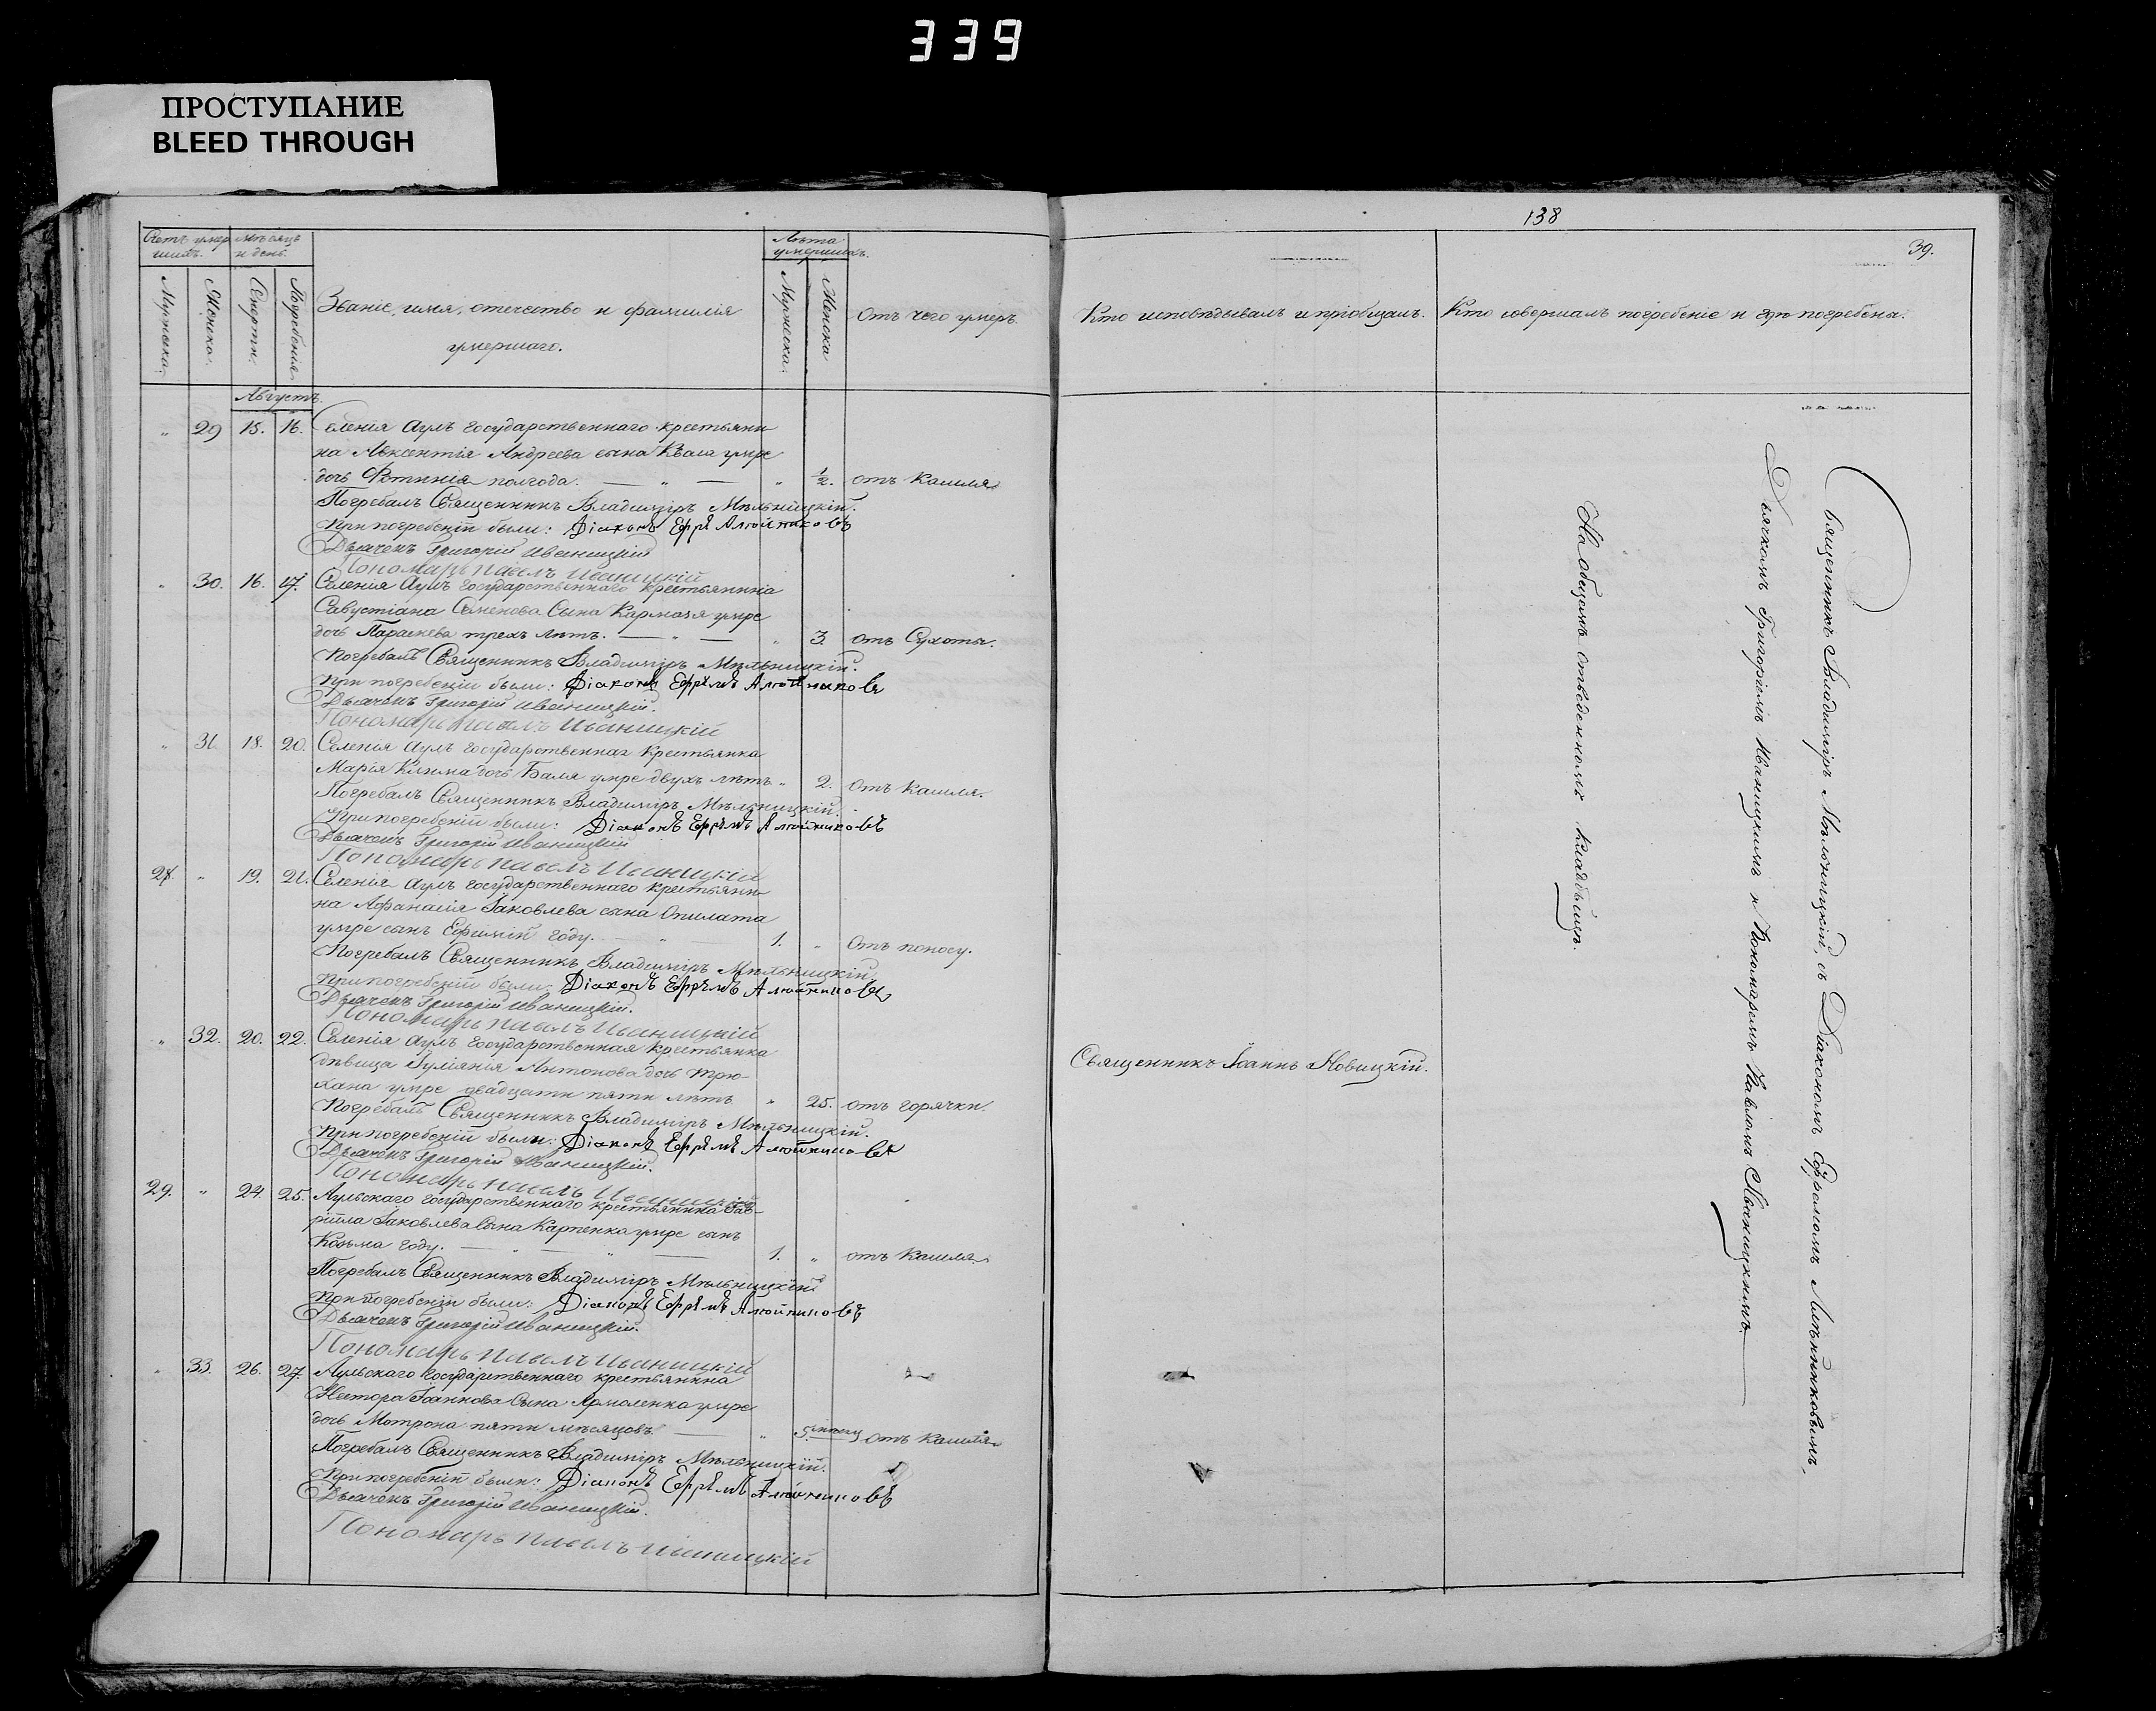 339
ПРОСТУПАНИЕ
BLEED THROUGH
138
39.
Счетъ умер
шихъ.
Мѣсяцъ
и день.
Мужеска.
Женска.
Смерти.
Погребенія.
Званіе, имя, отечество и фамилія
умершаго.
Лѣта
умершихъ.
Мужеска.
Женска
Отъ чего умеръ.
Кто исповѣдывалъ и пріобщалъ.
Кто совершалъ погребеніе и гдѣ погребены.
Августъ.
„ 29 15. 16. Селенія Аулъ государственнаго крестьяни
на Авксентія Андреева сына Кваша умре
дочь Фотинія полгода. — „ — „ 1/2. отъ Кашля
Погребалъ Священникъ Владиміръ Мѣльницкій.
При погребеніи были: Діаконъ Ефремъ
Дьячекъ Григорій Иваницкій
Пономарь Павелъ Иваницкій
„ 30. 16. 17. Селенія Аулъ Государственнаго крестьянина
Савустіана Семенова Сына Кармазя умре
дочь Параскева трехъ лѣтъ. — „ — „ 3 отъ Сухоты.
Погребалъ Священникъ Владиміръ Мѣльницкій.
При погребеніи были: Діаконъ Ефремъ
Дьячекъ Григорій Иваницкій.
Пономарь Павелъ Иваницкій
„ 31. 18. 20. Селенія Аулъ государственная крестьянка
Марія Клима дочь Баля умре двухъ лѣтъ „ 2. отъ Кашля.
Погребалъ Священникъ Владиміръ Мѣльницкій.
При погребеніи были: Діаконъ Ефремъ
Дьячекъ Григорій Иваницкій
Пономарь Павелъ Иваницкій
28. „ 19. 21. Селенія Аулъ государственнаго крестьяни
на Афанасія Іаковлева сына Опилата
умре сынъ Ефимій году. 1. „ Отъ поносу.
Погребалъ Священникъ Владиміръ Мѣльницкій.
При погребеніи были: Діаконъ Ефремъ
Дьячекъ Григорій Иваницкій.
Пономарь Павелъ Иваницкій
„ 32. 20. 22. Селенія Аулъ Государственная крестьянка
дѣвица Іуліянія Антонова дочь Трю-
хана умре двадцати пяти лѣтъ „ 25. отъ горячки.
Погребалъ Священникъ Владиміръ Мѣльницкій.
При погребеніи были: Діаконъ Ефремъ
Дьячекъ Григорій Иваницкій.
Пономарь Павелъ Иваницкій
29. „ 24. 25. Аульскаго государственнаго крестьянина Гав-
ріила Іаковлева Сына Карпенка умре сынъ
Козьма году. — „ — „ — 1. „ отъ Кашля
Погребалъ Священникъ Владиміръ Мѣльницкій
При погребеніи были: Діаконъ Ефремъ
Дьячекъ Григорій Иваницкій.
Пономарь Павелъ Иваницкій
„ 33. 26. 27 Аульскаго Государственнаго крестьянина
Нестора Іоаннова Сына Ярмоленка умре
дочь Мотрона пяти мѣсяцовъ — „ 5 отъ Кашля
Погребалъ Священникъ Владиміръ Мѣльницкій.
При погребеніи были: Діаконъ Ефремъ
Дьячекъ Григорій Иваницкій.
Пономарь Павелъ Иваницкій
Священникъ Іоаннъ Новицкій.
Священникъ Владиміръ Мѣльницкій, съ Діакономъ Ефремомъ
Дьячкомъ Григоріемъ Иваницкимъ и Пономаремъ Павломъ Иваницкимъ.
На общемъ отведенномъ кладбищѣ.